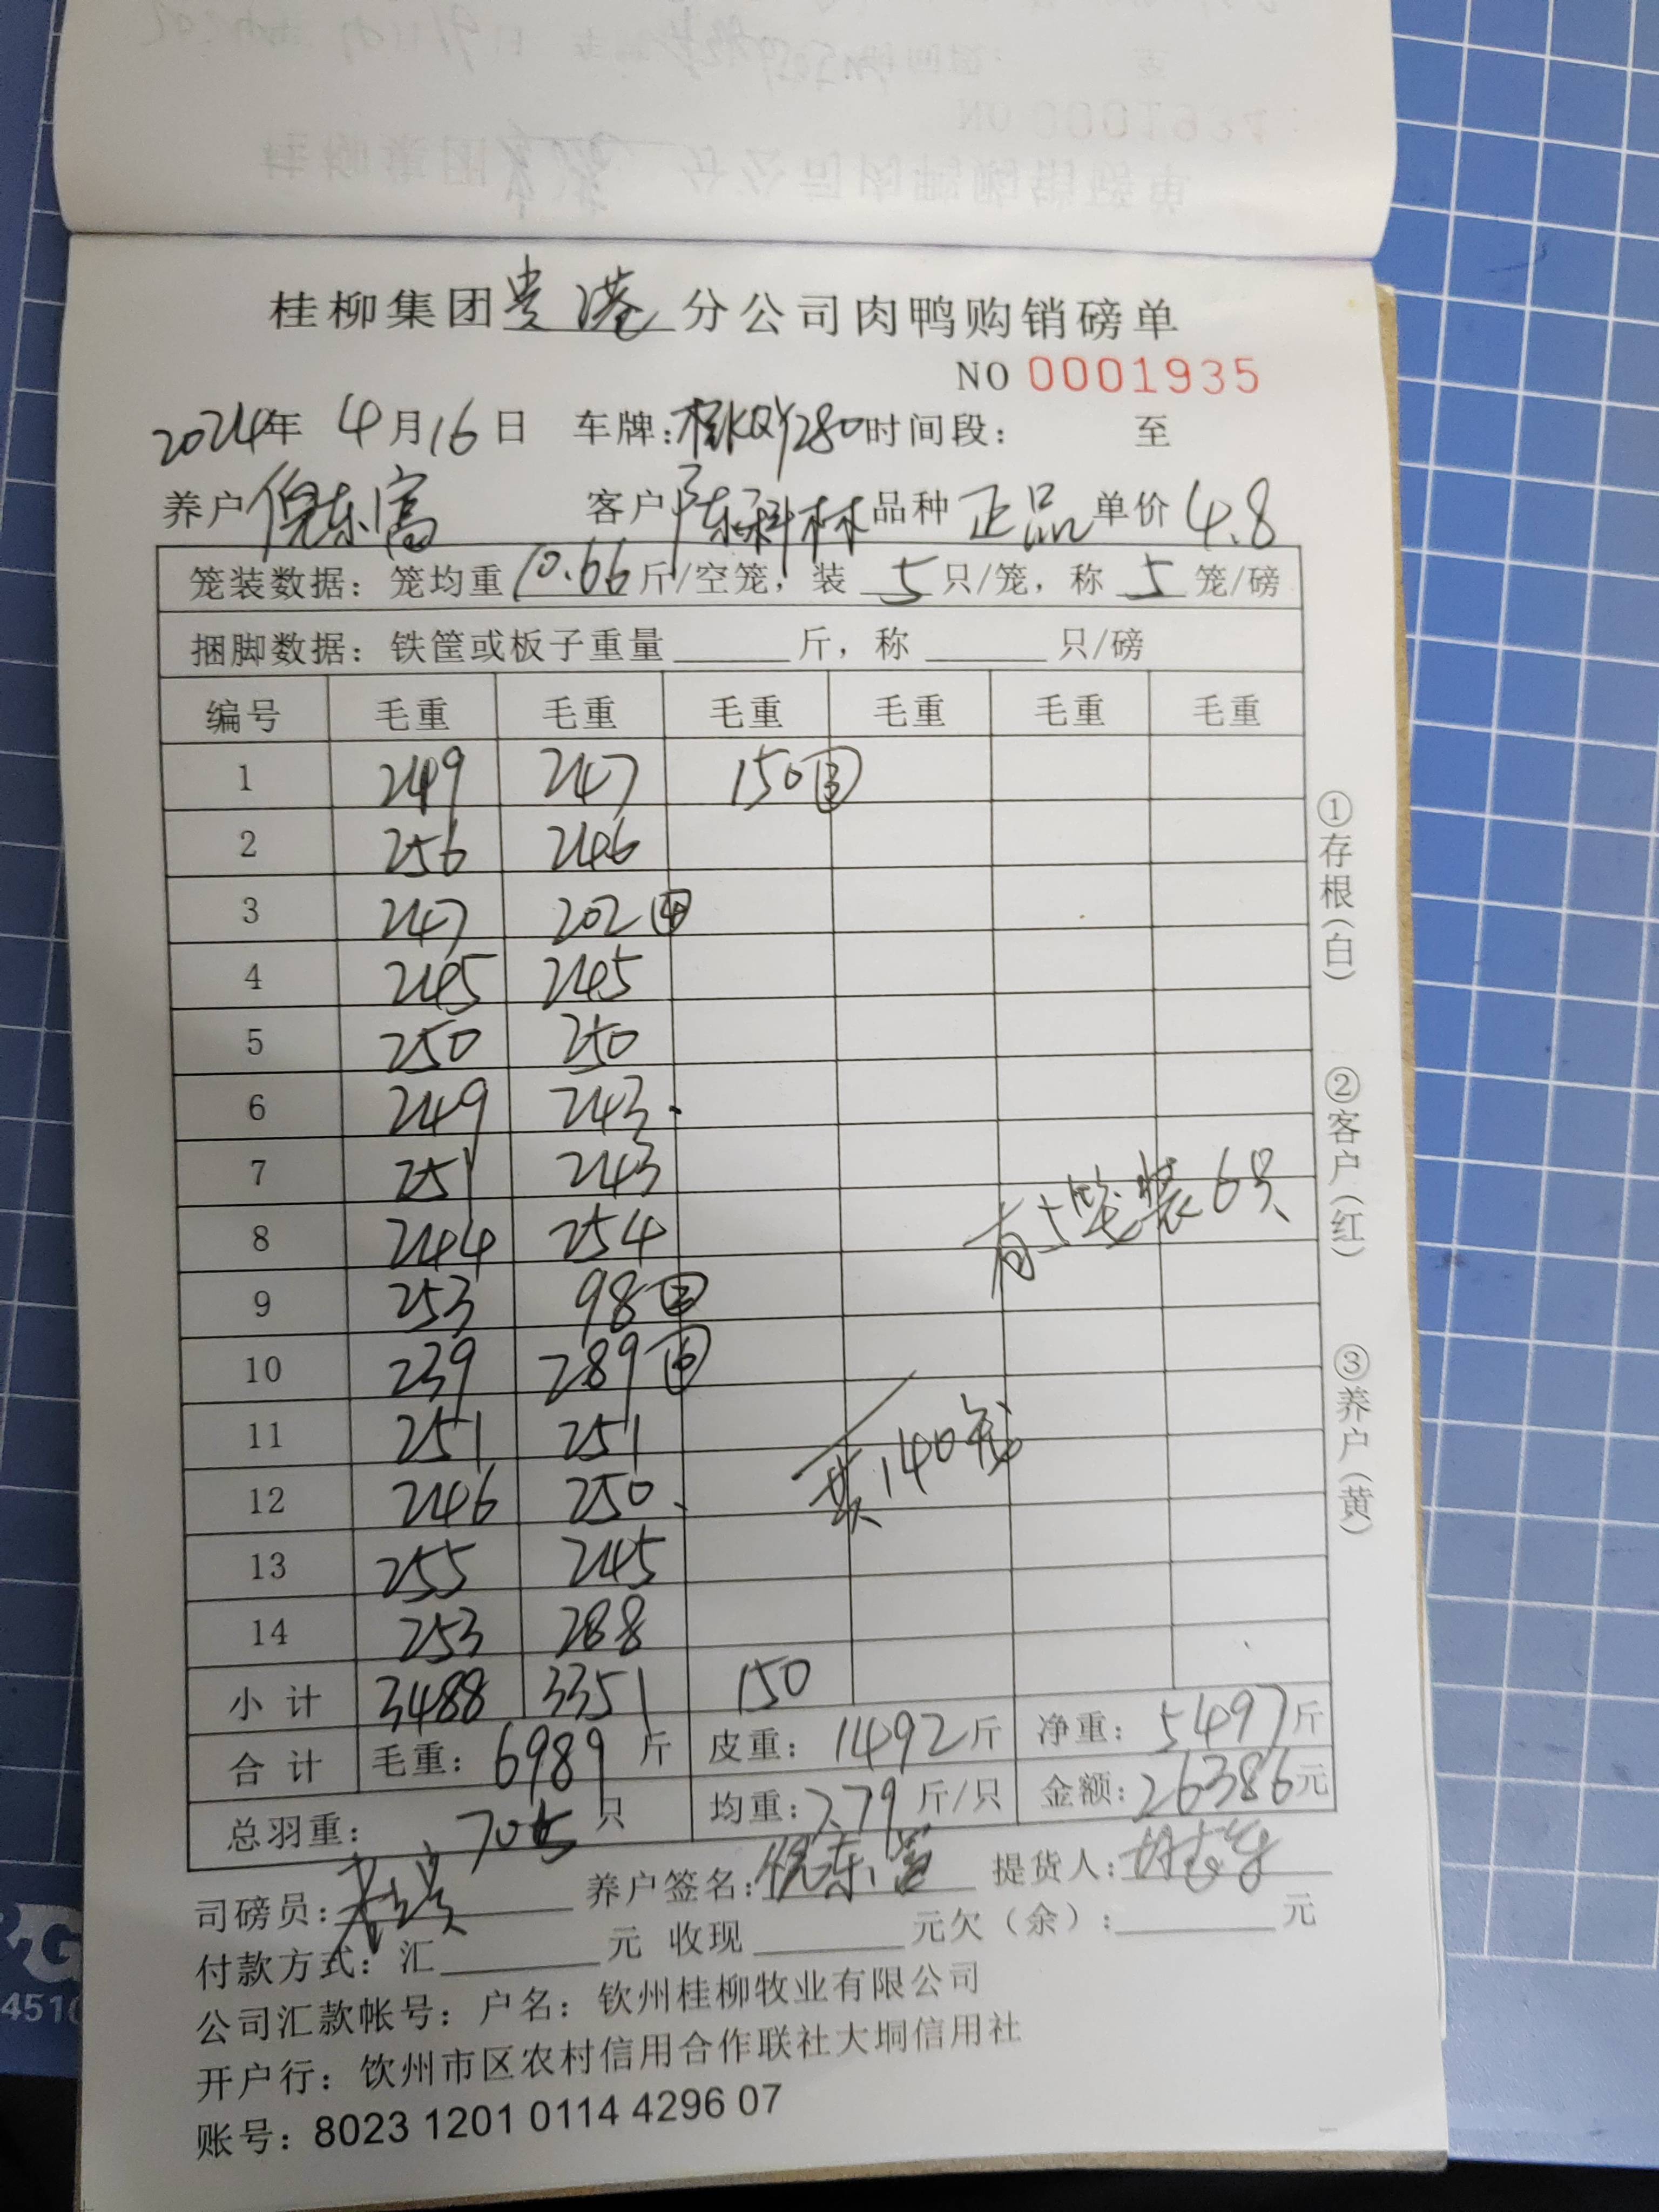 桂柳集团贵港分公司肉鸭购销磅单
NO 0001935
2024年 4月16日 车牌: 时间段: 至
养户 倪东富 客户 陈科林 品种 正品 单价 4.8
笼装数据: 笼均重 10.66 斤/空笼, 装 5 只/笼, 称 5 笼/磅
捆脚数据: 铁筐或板子重量 斤, 称 只/磅
编号 毛重 毛重 毛重 毛重 毛重 毛重
1 249 247 150③
2 256 246
3 247 202④
4 245 245
5 250 250
6 249 243
7 251 243
8 244 254
9 253 98②
10 239 289⑥
11 251 251
12 246 250
13 255 245
14 253 288
有5笼装6只
共140笼
小计 3488 3351 150
合计 毛重: 6989 斤 皮重: 1492斤 净重: 5497斤
总羽重: 705 只 均重: 7.79 斤/只 金额: 26386元
司磅员: 养户签名: 倪东富 提货人:
付款方式: 汇 元 收现 元欠(余): 元
公司汇款帐号: 户名: 钦州桂柳牧业有限公司
开户行: 钦州市区农村信用合作联社大垌信用社
账号: 8023 1201 0114 4296 07
①存根(白)
②客户(红)
③养户(黄)
451